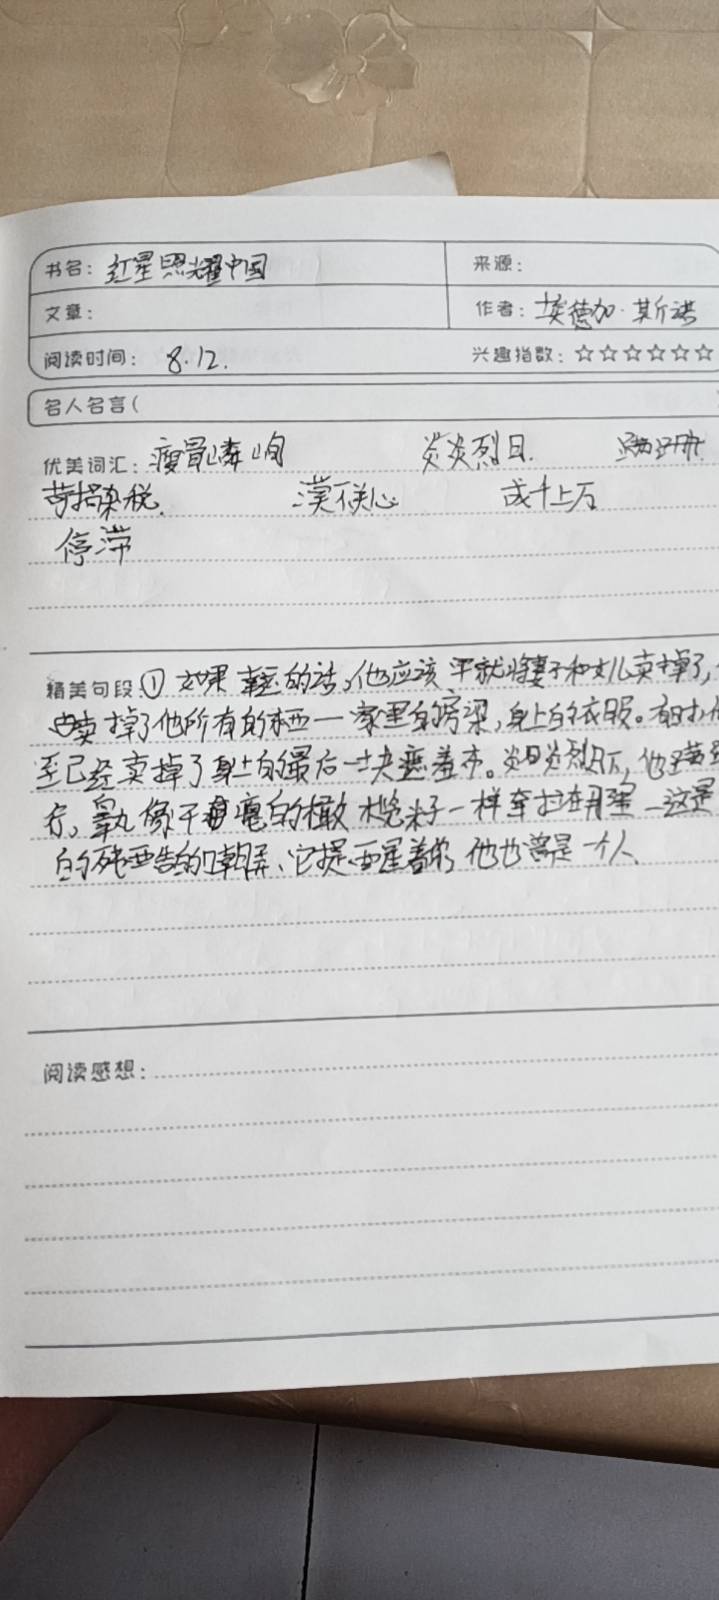 书名：红星照耀中国 来源：
文章： 作者：埃德加·斯诺
阅读时间：8.12. 兴趣指数：☆☆☆☆☆☆
名人名言（
优美词汇：瘦骨嶙峋 炎炎烈日. 蹒跚
苛捐杂税. 漠不关心 成千上万
停滞
精美句段：① 如果幸运的话，他应该早就将妻子和女儿卖掉了，
卖掉了他所有的东西一家里的房梁，身上的衣服。有时
至已经卖掉了身上的最后一块遮羞布。炎炎烈日下，他
行，睾丸像干瘪的橄榄籽一样牵拉在那里一这是
的玩笑，它提醒着你他也曾是一个人
阅读感想：